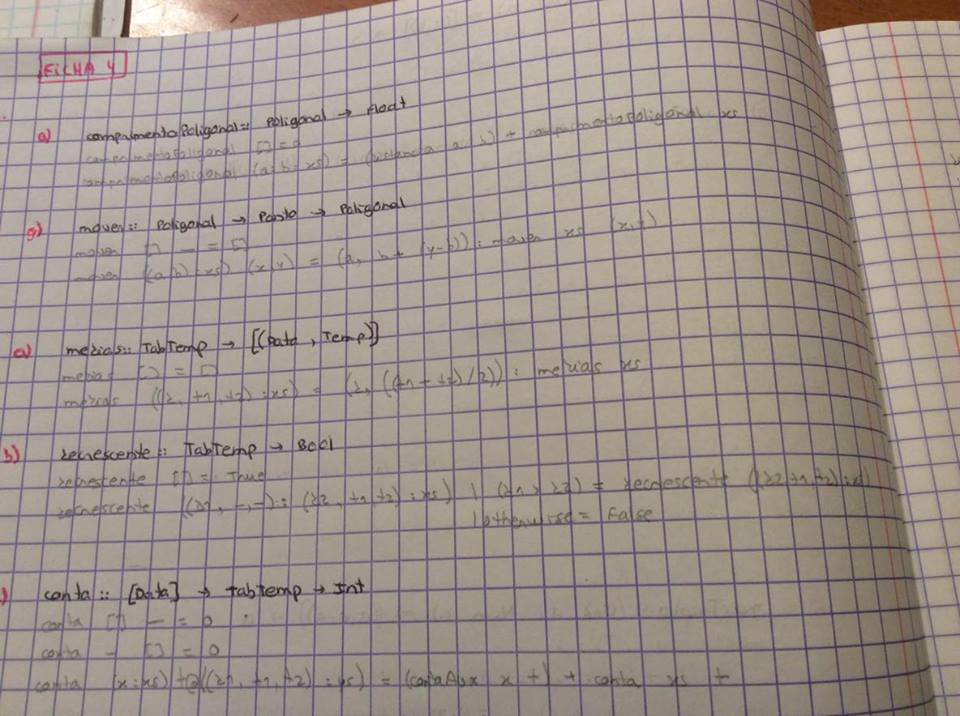 FICHA 4
a) compalmentoPoligonal:: Poligonal → Float
compalmentoPoligonal [] = 0
compalmentoPoligonal (a:b:xs) = (distancia a b) + compalmentoPoligonal xs
g) mover:: Poligonal → Ponto → Poligonal
mover [] _ = []
mover ((a,b):xs) (x,y) = (a, b+ (y-b)): mover xs (x,y)
a) medias:: TabTemp → [(Data, Temp)]
medias [] = []
medias ((d, t1, t2):xs) = (d, ((t1+t2)/2)): medias xs
b) decrescente:: TabTemp → Bool
decrescente [] = True
decrescente ((d1, _, _): (d2, t1, t2):xs) | (d1 > d2) = decrescente ((d2, t1, t2):xs)
| otherwise = False
) conta:: [Data] → TabTemp → Int
conta [] _ = 0
conta _ [] = 0
conta (x:xs) t@((d1, t1, t2):ys) = (contaAux x t) + conta xs t